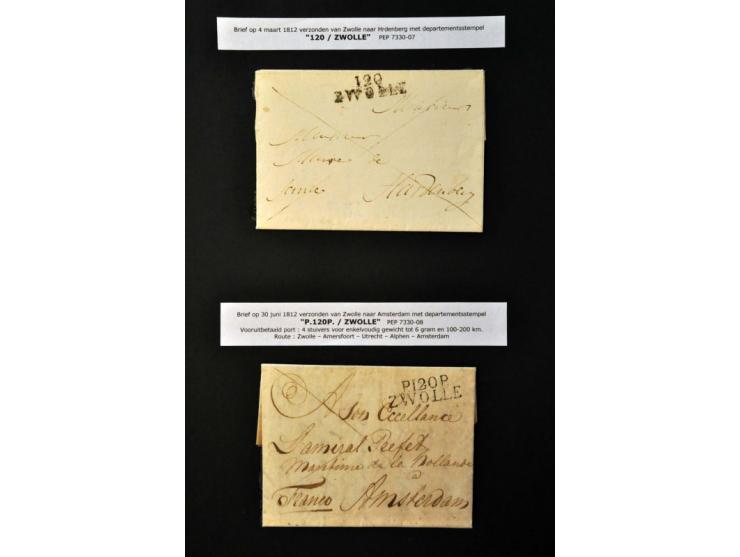 Brief op 4 maart 1812 verzonden van Zwolle naar Hrdenberg met departementsstempel
"120 / ZWOLLE" PEP 7330-07
120
ZWOLLE
Monsieur
Monsieur
Maire de
Hardenberg
Brief op 30 juni 1812 verzonden van Zwolle naar Amsterdam met departementsstempel
"P.120P. / ZWOLLE" PEP 7330-08
Vooruitbetaald port : 4 stuivers voor enkelvoudig gewicht tot 6 gram en 100-200 km.
Route : Zwolle – Amersfoort – Utrecht – Alphen – Amsterdam
P120P
ZWOLLE
A Son Excellance
L'amiral Prefet
Maritime de la Hollande
a
Franco Amsterdam